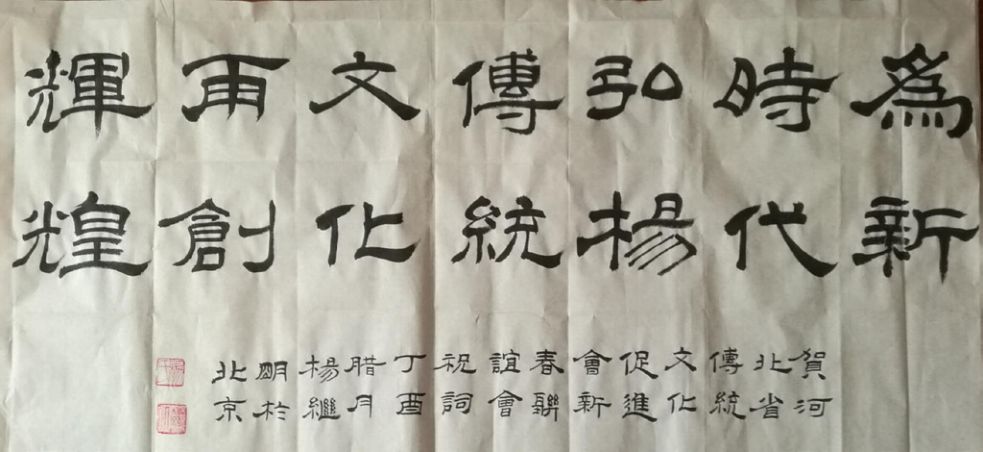 為新
時代
弘楊
傳統
文化
再創
輝煌
賀河
北省
傳統
文化
促進
會新
春聯
誼會
祝詞
丁酉
腊月
楊繼
明於
北京